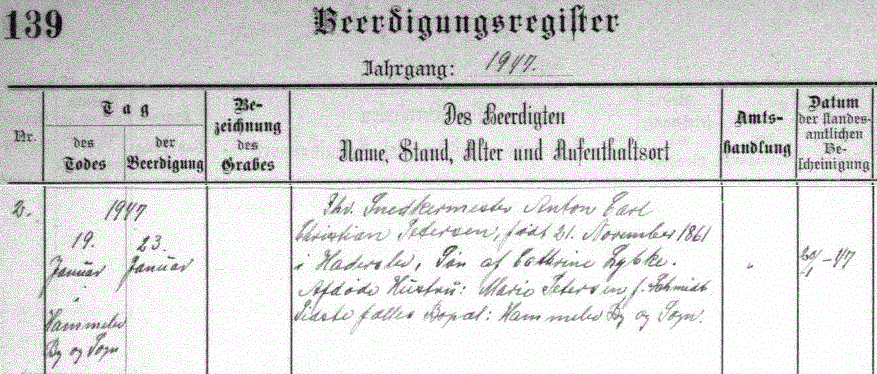 139
Beerdigungsregister
Jahrgang: 1947.
Nr.
Tag
des Todes
der Beerdigung
Be-
zeichnung
des
Grabes
Des Beerdigten
Name, Stand, Alter und Aufenthaltsort
Amts-
handlung
Datum
der standes-
amtlichen
Be-
scheinigung
2.
1947
19.
Januar
"
Hammelev
By og Sogn
23.
Januar
Fhv. Snedkermester Anton Carl
Christian Petersen, født 21. November 1861
i Haderslev, Søn af Cathrine Lykke.
Afdøde Hustru: Marie Petersen f. Schmidt
Sidste fælles Bopæl: Hammelev By og Sogn.
"
-47